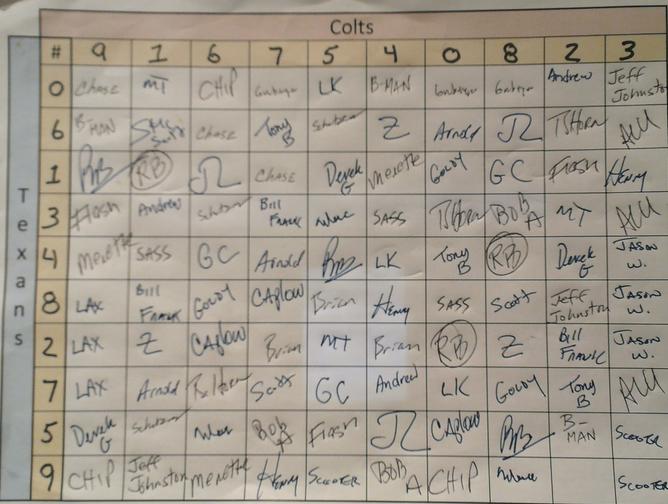 Colts
Texans
# 9 1 6 7 5 4 0 8 2 3
0 Chase MT CHIP LK B-MAN Andrew Jeff Johnston
6 B-MAN Chase Tony B Z Arnold TSHorn ALU
1 RB Chase Derek G Merette Gouy GC Flash Henry
3 Flash Andrew Bill Frank SASS TSHorn BOB A MT ALU
4 Merette SASS GC Arnold LK Tony B RB Derek G JASON W.
8 LAX Bill Frank Gouy CAPlow Brian Henry SASS Scott Jeff Johnston JASON W.
2 LAX Z CAPlow Brian MT Brian RB Z Bill Frank JASON W.
7 LAX Arnold Scott GC Andrew LK Gouy Tony B ALU
5 Derek G BOB A Flash CAPlow B-MAN SCOOTER
9 CHIP Jeff Johnston Merette Henry SCOOTER BOB A CHIP SCOOTER